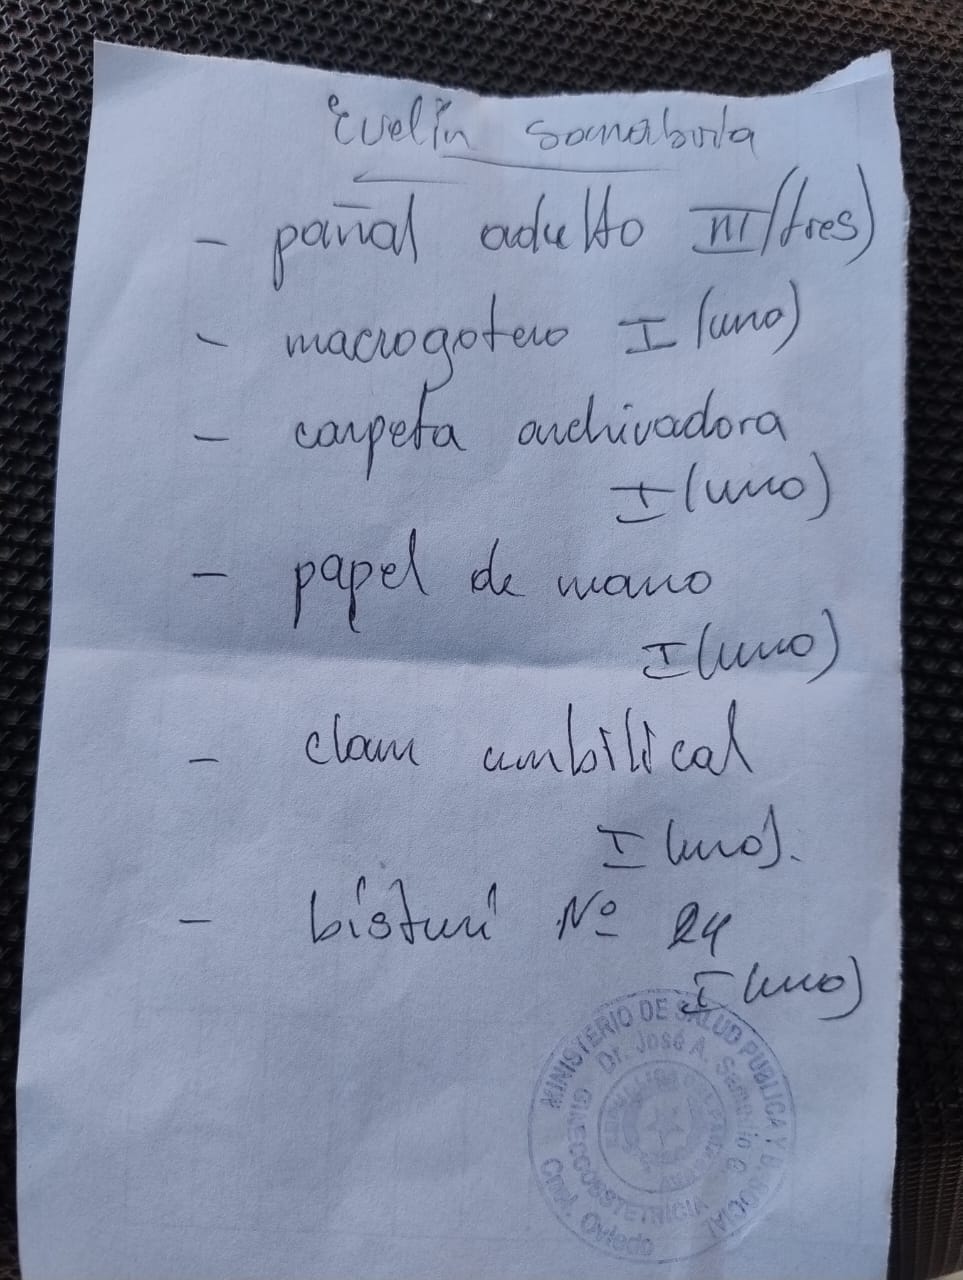 Evelin Sanabria
- pañal adulto III (tres)
- macrogotero I (uno)
- carpeta archivadora
I (uno)
- papel de mano
I (uno)
- clam umbilical
I (uno).
- bisturí Nº 24
I (uno)
MINISTERIO DE SALUD PUBLICA Y B. SOCIAL
Dr. José A. Samudio G.
GINECOOBSTETRICIA
Cnel. Oviedo